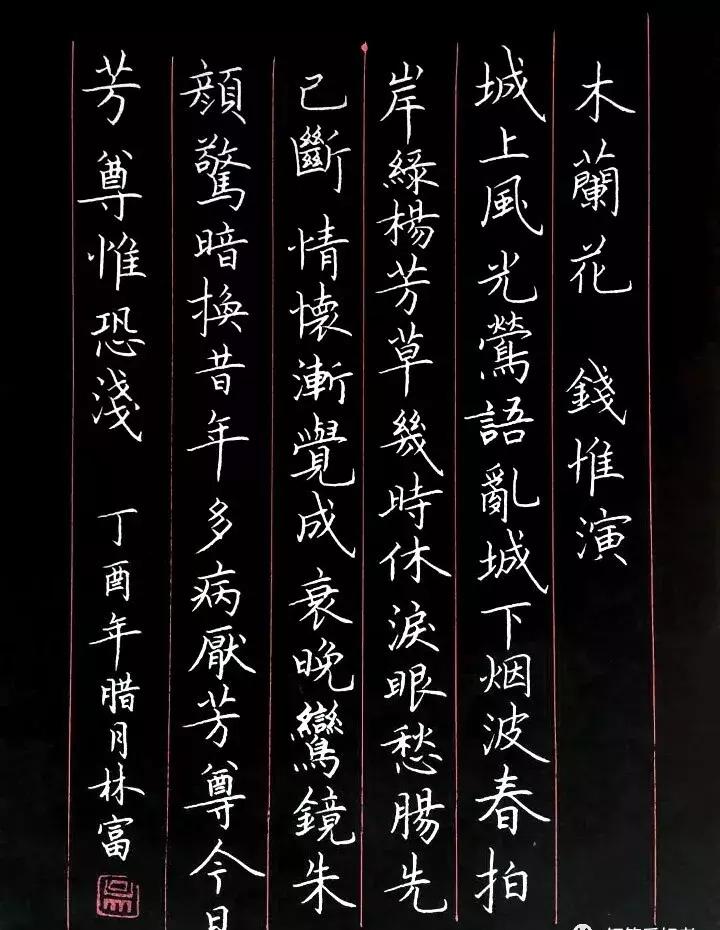 木蘭花　錢惟演
城上風光鶯語亂城下烟波春拍
岸綠楊芳草幾時休淚眼愁腸先
已斷情懷漸覺成衰晚鸞鏡朱
顔驚暗換昔年多病厭芳尊今日
芳尊惟恐淺　丁酉年腊月林富